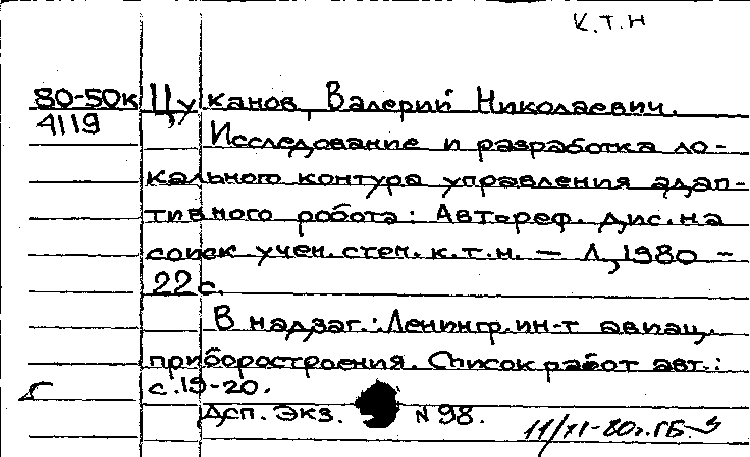 К.Т.Н
80-50к Цуканов, Валерий Николаевич.
4119 Исследование и разработка ло-
кального контура управления адап-
тивного робота: Автореф. дис. на
соиск учен. степ. к.т.н. — Л, 1980 -
22 с.
В надзаг.: Ленингр. ин-т авиац.
приборостроения. Список работ авт.:
с. 19-20.
Дсп. Экз. N 98.
11/XI-80г. ГБ